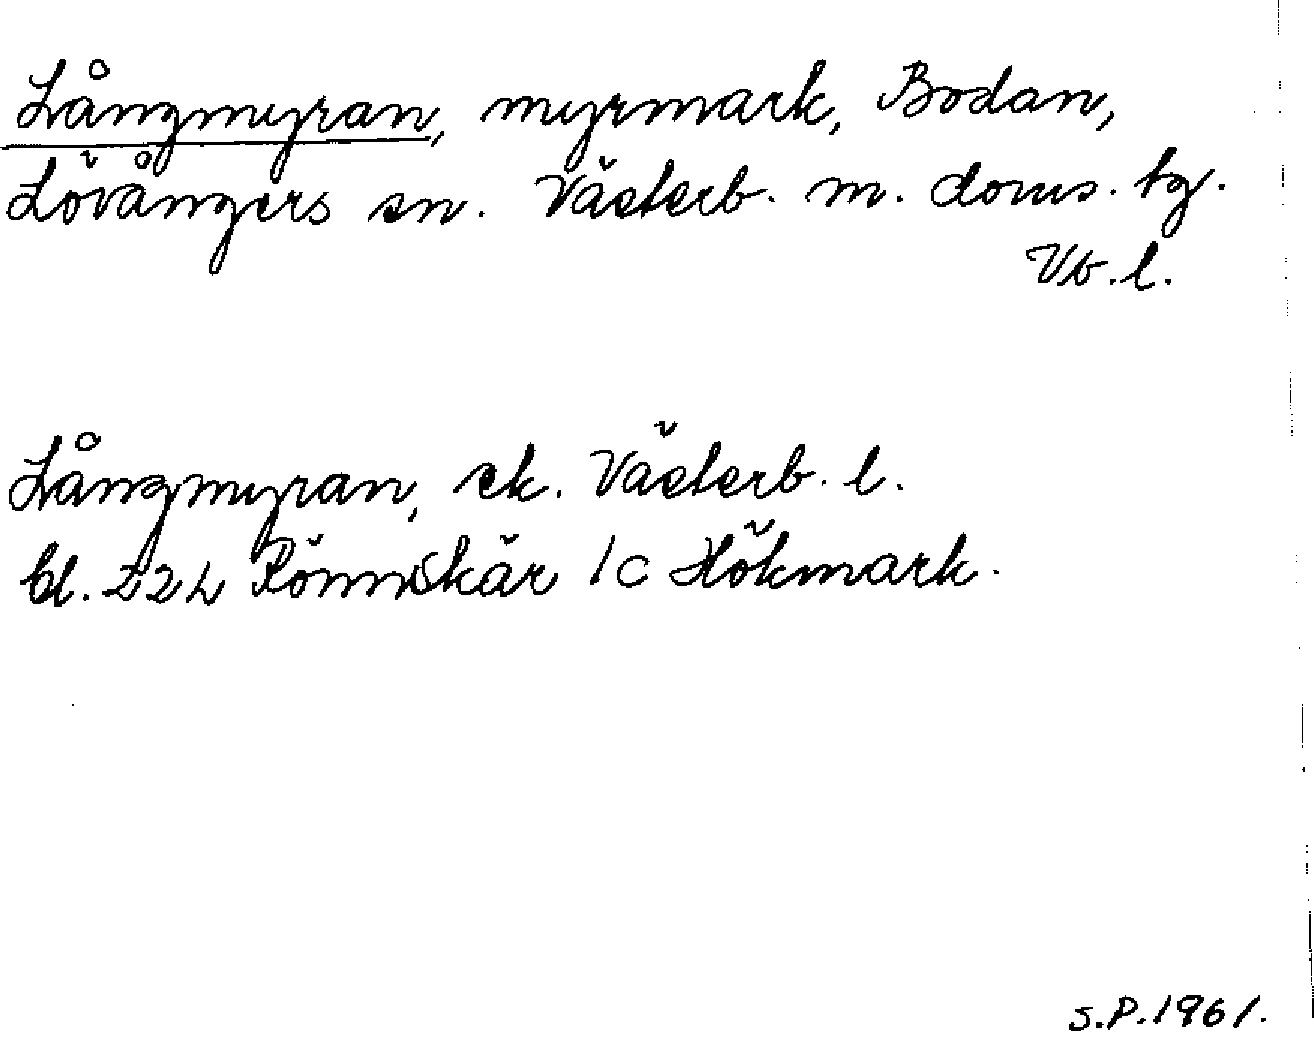 Långmyran, myrmark, Bodan,
Lövångers sn. Västerb. m. doms. tg.
Vb. l.
Långmyran, ek. Västerb. l.
bl. 22 L Rönnskär 1c Hökmark.
S.P. 1961.